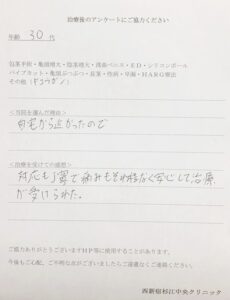 治療後のアンケートにご協力ください
年齢 30 代
包茎手術・亀頭増大・陰茎増大・長茎・ED・シリコンボール
パイプカット・亀頭ぶつぶつ・長茎・性病・早漏・HARG療法
その他(キョウガン)
<当院を選んだ理由>
自宅から近かったので
<治療を受けての感想>
対応も丁寧で痛みもそれ程なく安心して治療
が受けられた。
ご協力ありがとうございますHP等に使用することがあります。
今後もご心配、ご不明な点がございましたらご遠慮なくご連絡ください。
西新宿杉江中央クリニック